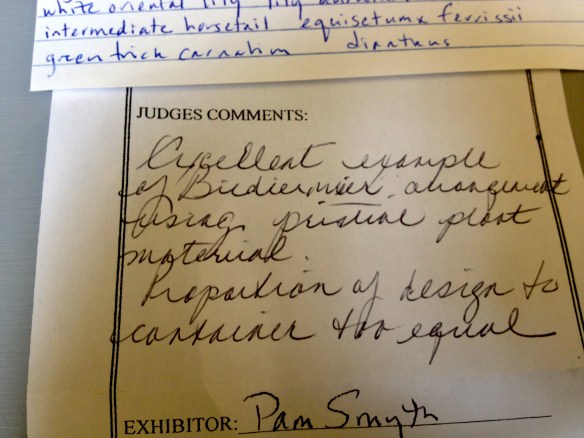 white oriental lily lily
intermediate horsetail equisetum x ferrissii
green trick carnation dianthus
JUDGES COMMENTS:
Excellent example
of Biediermier arrangement
using pristine plant
material.
Proportion of design to
container too equal
EXHIBITOR: Pam Smyth